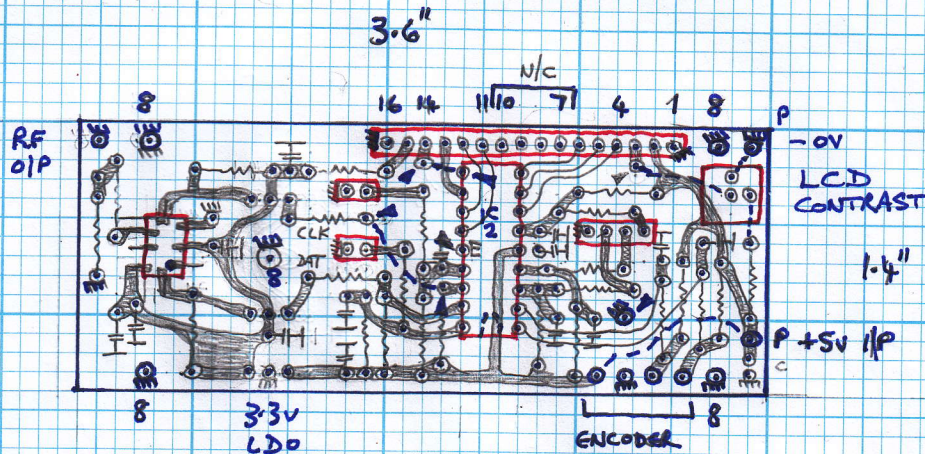 3.6"
N/C
8 16 14 11 10 7 4 1 8 P
RF
O/P
- 0V
LCD
CONTRAST
IC
2
CLK
DAT
8
1.4"
P +5V I/P
C
8 3.3V
LDO
ENCODER
8